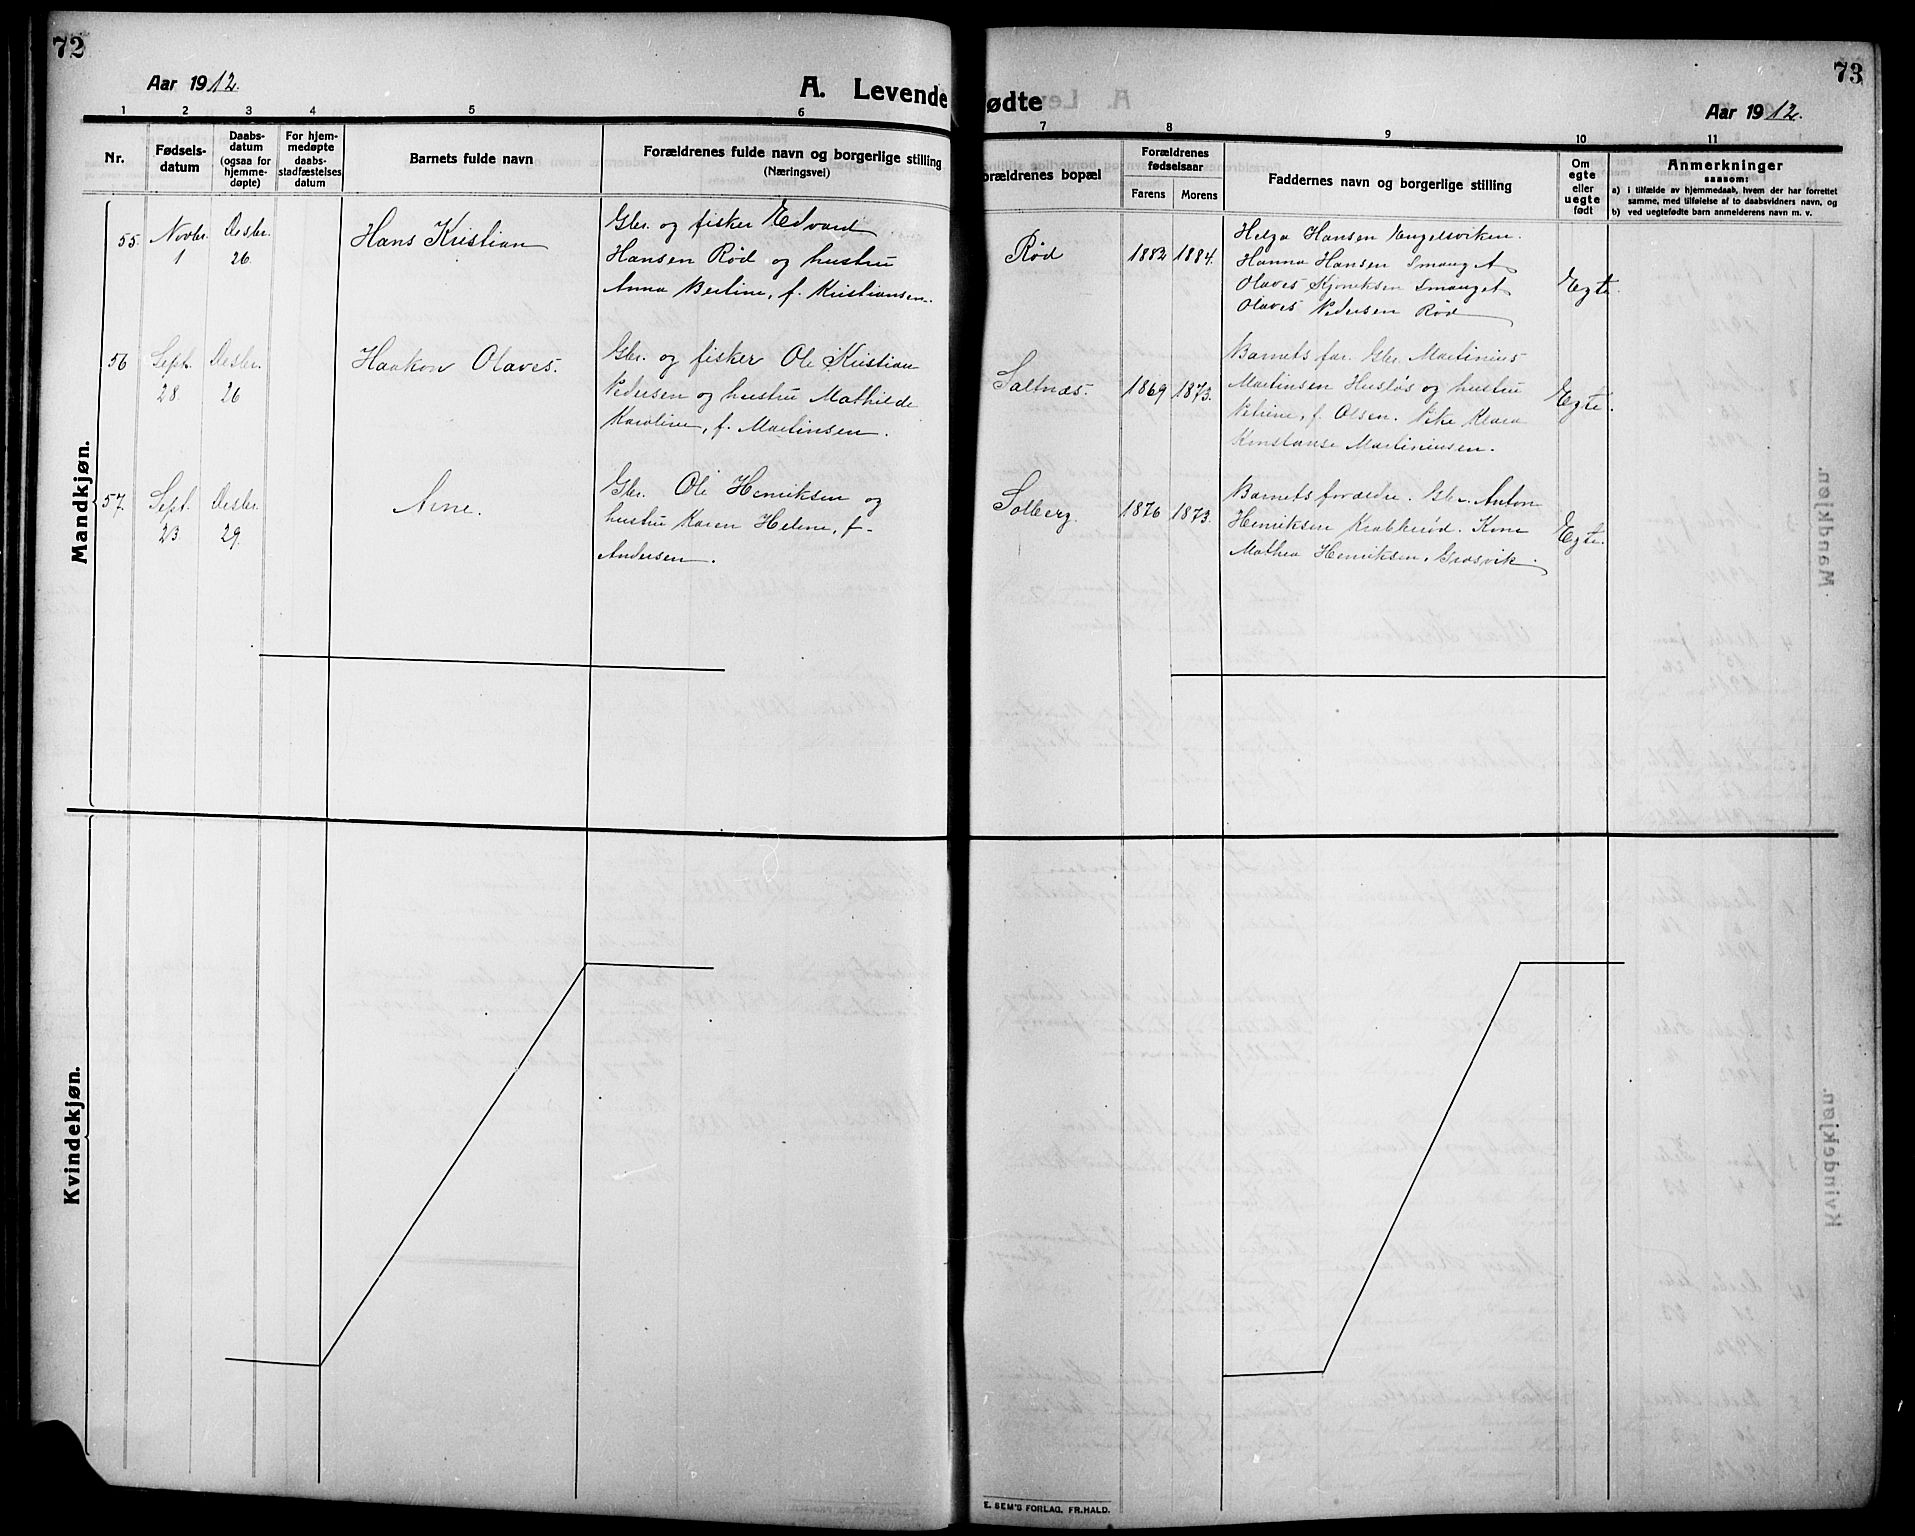 72
Aar 1912.
A. Levende
1 2 3 4 5 6
Nr.
Fødsels-
datum
Daabs-
datum
(ogsaa for
hjemme-
døpte)
For hjem-
medøpte
daabs-
stadfæstelses
datum
Barnets fulde navn
Forældrenes fulde navn og borgerlige stilling
(Næringsvei)
Mandkjøn.
55. Novbr. 1 Desbr. 26.
Hans Kristian
Gbr. og fisker Edvard
Hansen Rød og hustru
Anna Bertine, f. Kristiansen.
56 Sept. 28 Desbr. 26
Haakon Olaves.
Gbr. og fisker Ole Kristian
Pedersen og hustru Mathilde
Karoline, f. Martinsen.
57. Sept. 23 Desbr. 29.
Arne.
Gbr. Ole Henriksen og
hustru Karen Helene, f.
Andersen.
Kvindekjøn.
ødte
73
Aar 1912.
7 8 9 10 11
orældrenes bopæl
Forældrenes
fødselsaar
Farens Morens
Faddernes navn og borgerlige stilling
Om
egte
eller
uegte
født
Anmerkninger
saasom:
a) i tilfælde av hjemmedaab, hvem der har forrettet
samme, med tilføielse af to daabsvidners navn, og
b) ved uegtefødte barn anmelderens navn m. v.
Rød 1882 1884.
Helga Hansen Engelsviken.
Hanna Hansen Smauget
Olaves Smauget
Olaves Pedersen Rød
Egte.
Saltnæs. 1869 1873.
Barnets far. Gbr. Martinius
Martinsen Husløs og hustru
Petrine, f. Olsen. Pike Klara
Konstanse Martiniusen.
Egte.
Solberg. 1876 1873.
Barnets forældre. Gbr. Anton
Henriksen Krabberød. Kone
Mathea Henriksen, Græsvik.
Egte.
E. SEM'S FORLAG, FR.HALD.